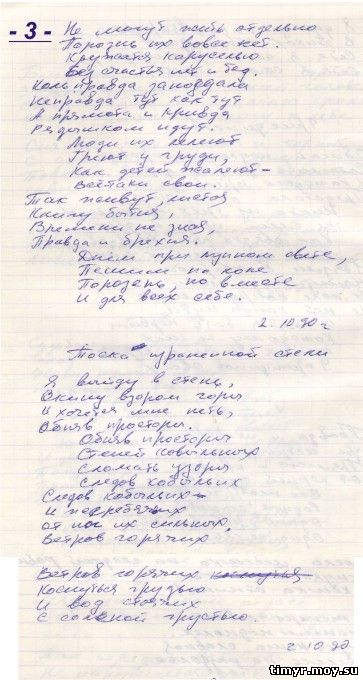 - 3 -
Не могут жить отдельно
Порознь их вовсе нет.
Кружатся каруселью
Без счастья лет и бед.
Коль правда запоздала
Неправда тут как тут
А прямота и кривда
Рядышком идут.
Люди их лелеют
Греют у груди,
Как детей жалеют -
Ведь таки свои.
Так живут, листая
Книгу бытия,
Времени не зная,
Правда и брехня.
Днём при лунном свете,
Пешим на коне
Порознь, но вместе
И для всех себе.
2.10.90 г
Тоска израненной степи
Я выйду в степь,
Вскину взором горы
И хочется мне петь,
Обняв просторы.
Обняв просторы
Степей ковыльных
Сломать узоры
Следов кобыльих
Следов кобыльих
И жеребячих
от ног их сильных,
Ветров горячих
Ветров горячих коснуться
Коснуться грудью
И вод стоячих
С солёной грустью.
2.10.90
timyr.moy.su